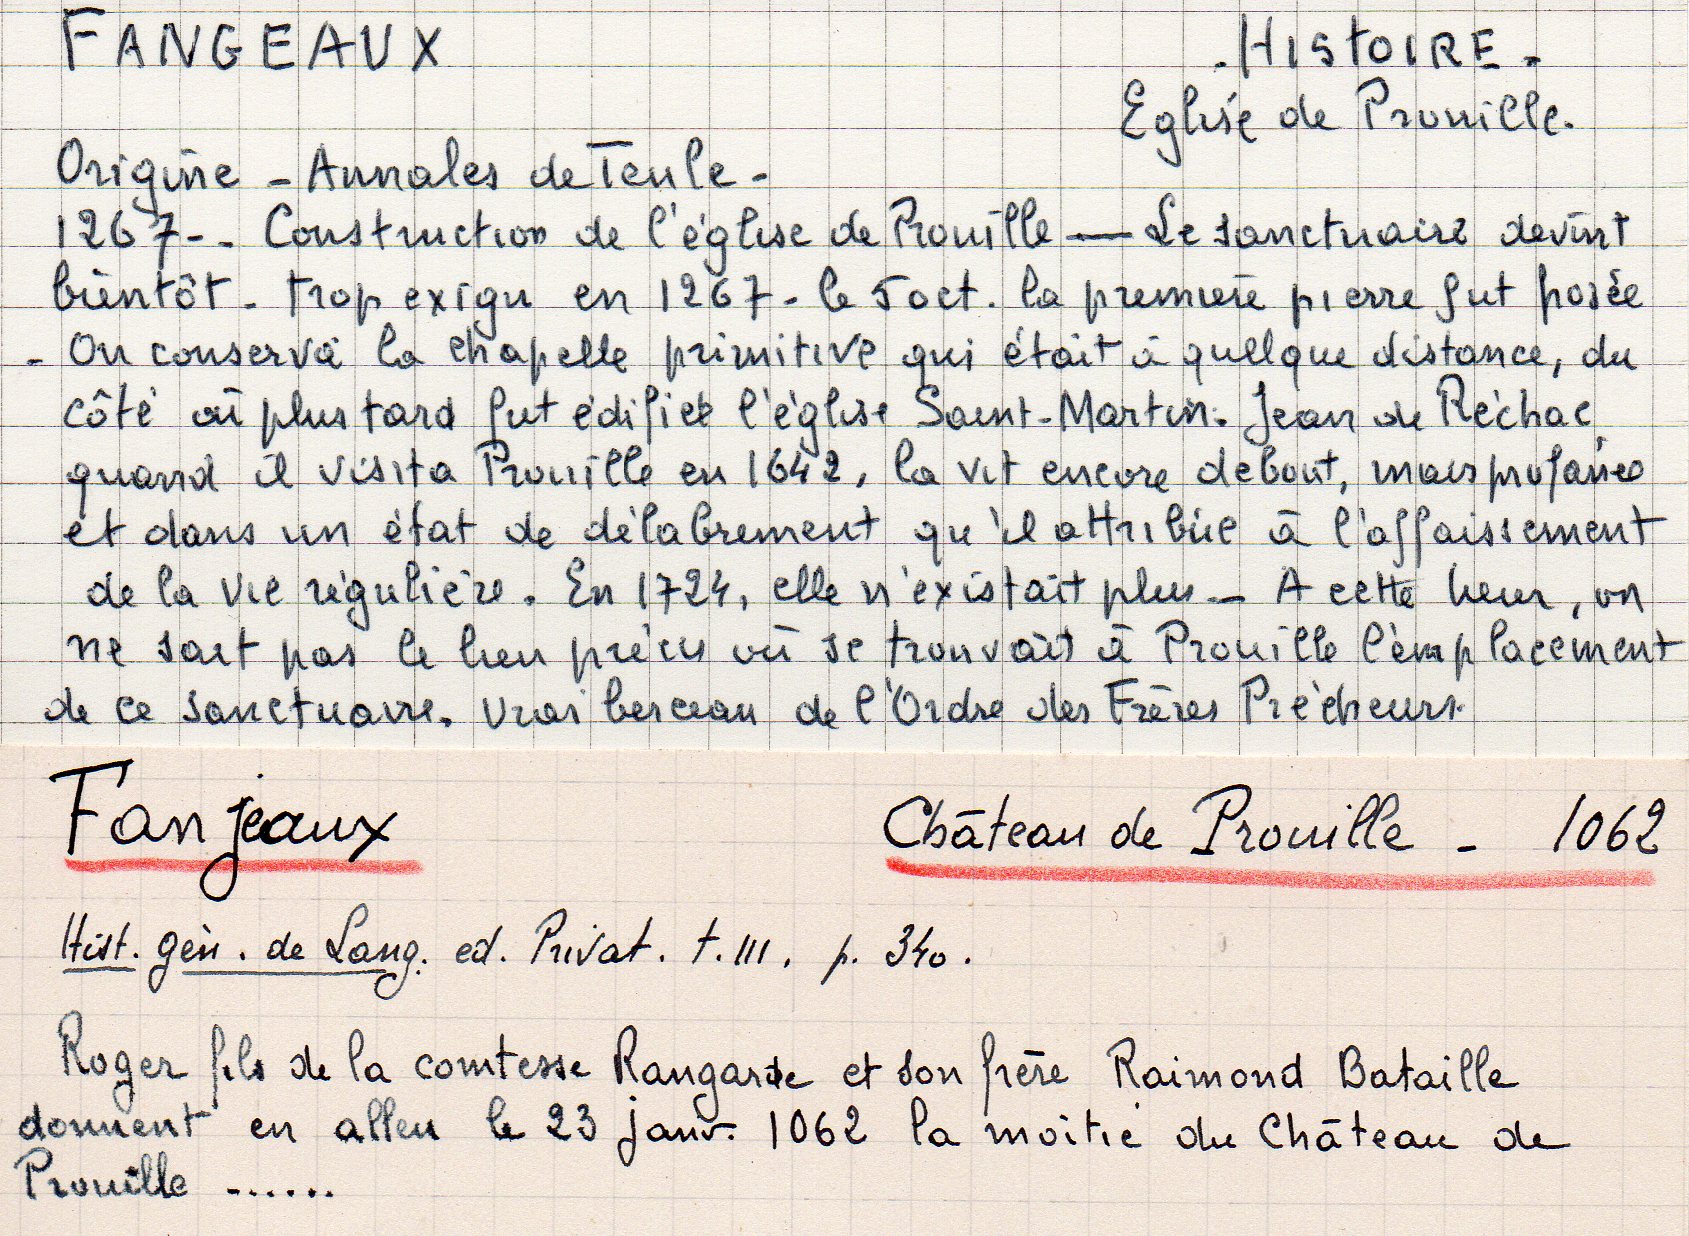 FANGEAUX - HISTOIRE -
Eglise de Prouille.
Origine - Annales de Teule -
1267 -- Construction de l'église de Prouille — Le sanctuaire devint
bientôt - trop exigu en 1267 - le 5 oct. la première pierre fut posée
- On conserva la chapelle primitive qui était à quelque distance, du
côté où plus tard fut édifiée l'église Saint-Martin. Jean de Réchac,
quand il visita Prouille en 1642, la vit encore debout, mais profanée
et dans un état de délabrement qu'il attribue à l'affaissement
de la vie régulière. En 1724, elle n'existait plus - A cette heur, on
ne sait pas le lieu précis où se trouvait à Prouille l'emplacement
de ce sanctuaire. Vrai berceau de l'Ordre des Frères Précheurs.
Fanjeaux Château de Prouille - 1062
Hist. gén. de Lang. ed. Privat. t. III. p. 340.
Roger fils de la comtesse Rangarde et son frère Raimond Bataille
donnent en alleu le 23 janv. 1062 la moitié du Château de
Prouille ......